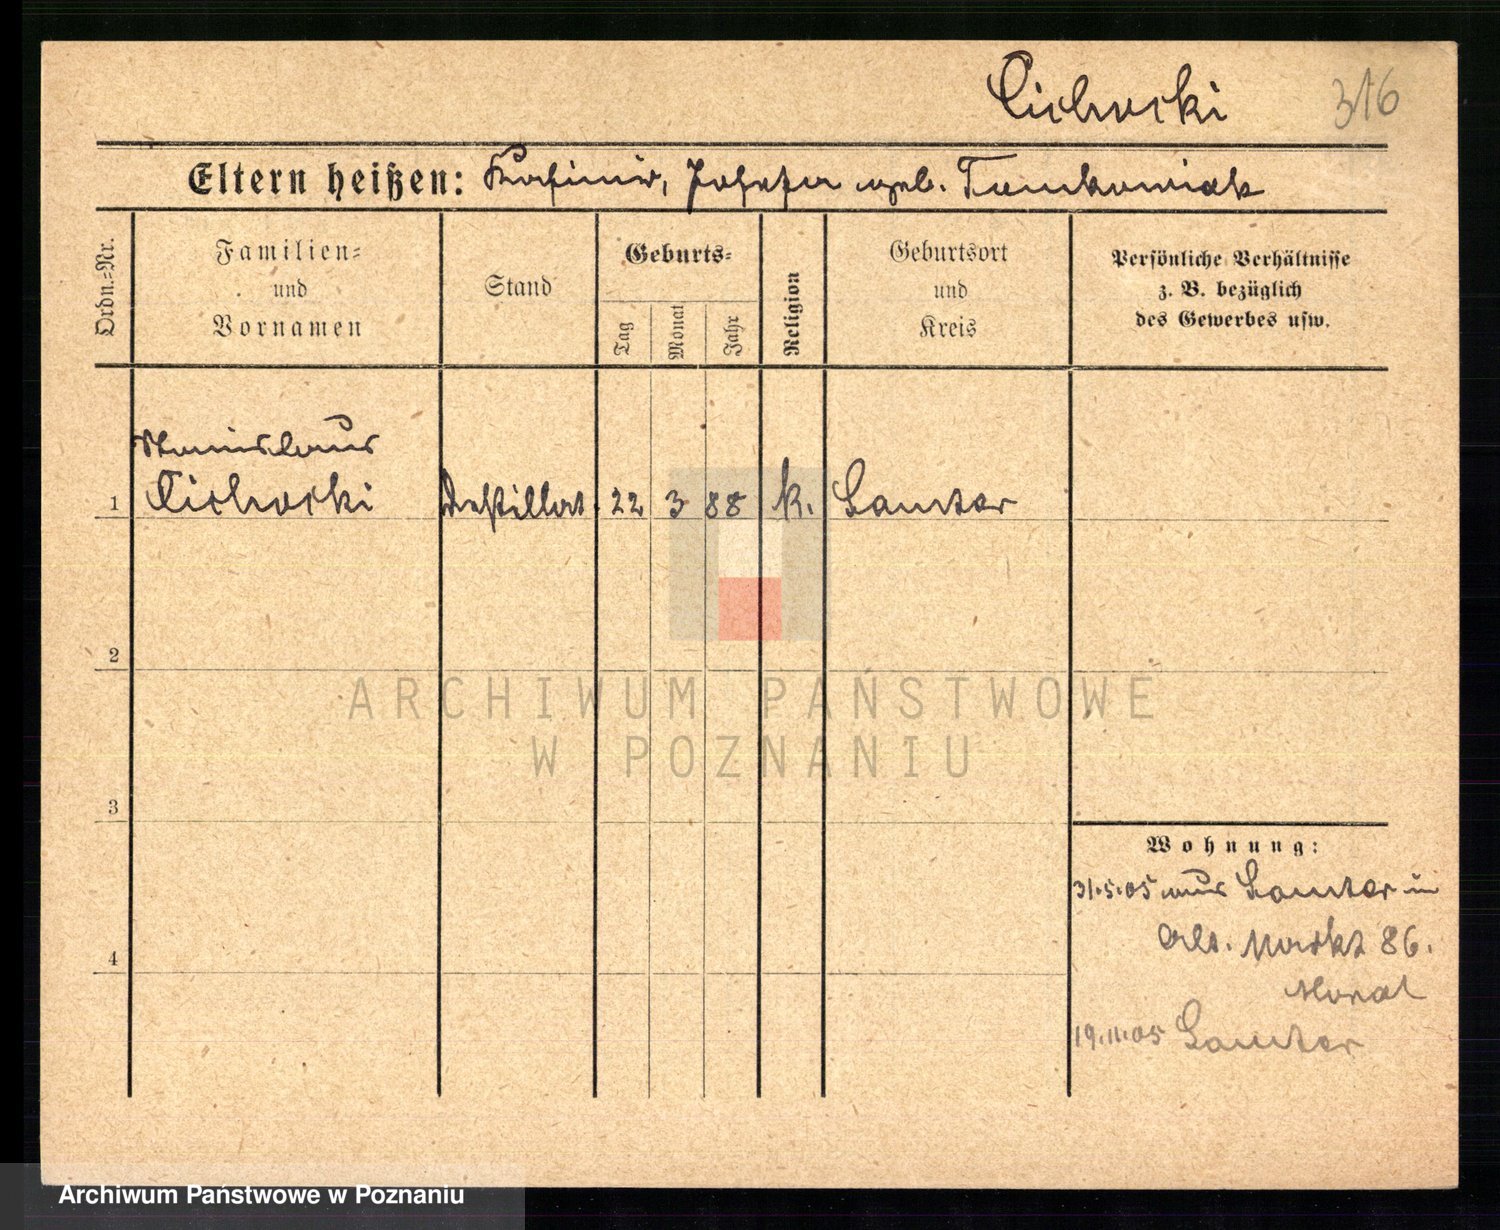 Cichocki 316
Eltern heißen: Kasimir, Josefa geb. Tomkowiak
Ordn.=Nr.
Familien=
und
Vornamen
Stand
Geburts=
Tag
Monat
Jahr
Religion
Geburtsort
und
Kreis
Persönliche Verhältnisse
z. B. bezüglich
des Gewerbes usw.
Stanislaus
1 Cichocki Destillat. 22 3 88 k. Samter
2
ARCHIWUM PAŃSTWOWE
W POZNANIU
3
Wohnung:
31.5.05 aus Samter in
Alt. Markt 86.
4
19.11.05 Samter
Archiwum Państwowe w Poznaniu